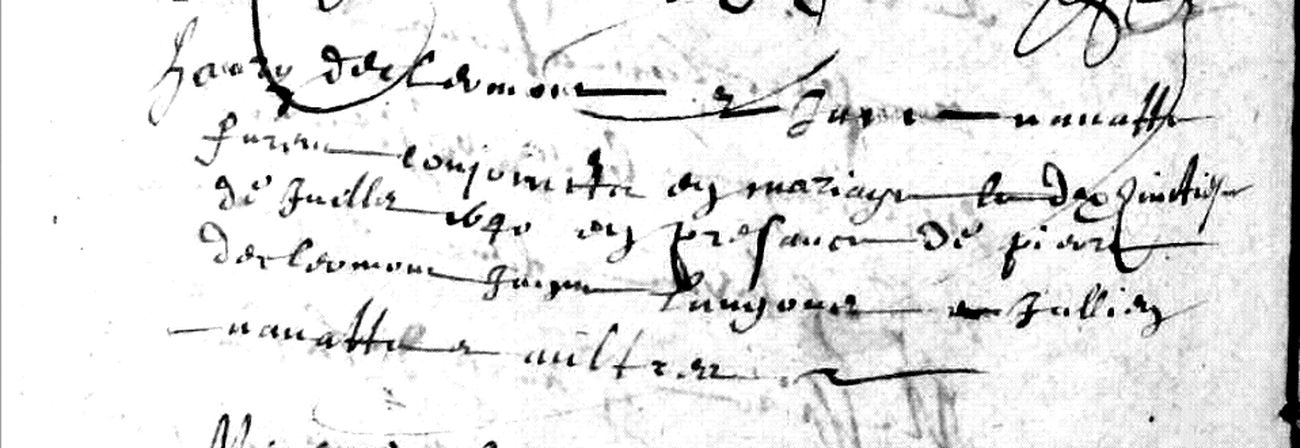 Henry declermont et Janne nanatte
furent conjoincts en mariage le dix huictiesme
de Juillet 1640 en presance de pierre
declermont Jacques et Jullien
nanatte et aultres